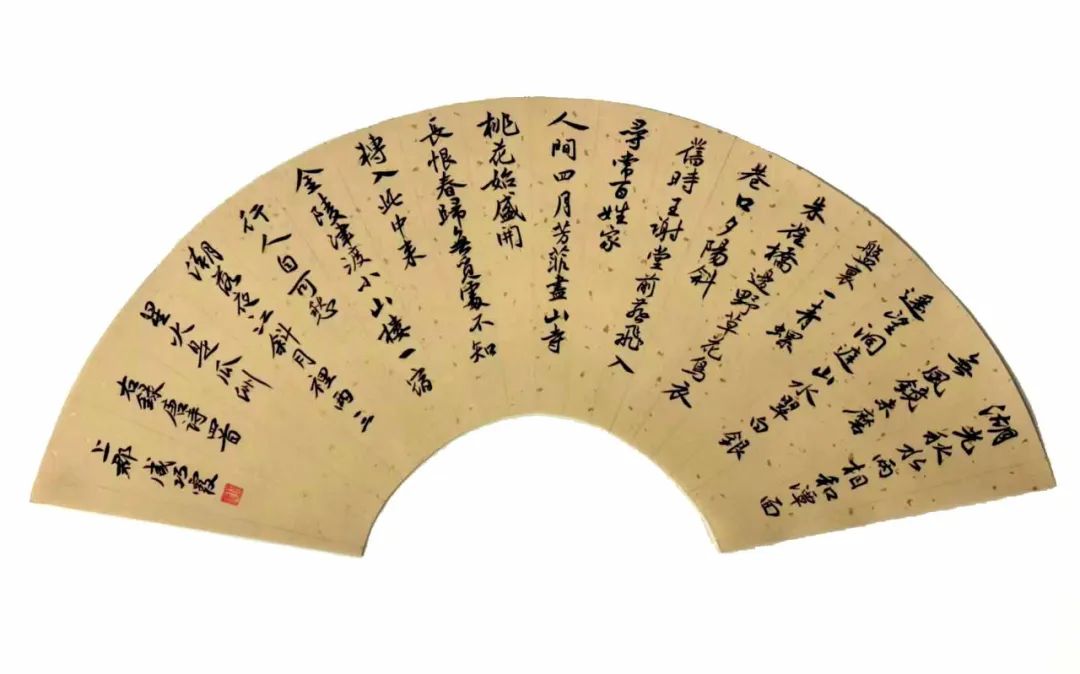 湖光秋水兩相和潭面
無風鏡未磨
遙望洞庭山水翠白銀
盤裏一青螺
朱雀橋邊野草花烏衣
巷口夕陽斜
舊時王謝堂前燕飛入
尋常百姓家
人間四月芳菲盡山寺
桃花始盛開
長恨春歸無覓處不知
轉入此中來
金陵津渡小山樓一宿
行人自可愁
潮落夜江斜月裡兩三
星火是瓜洲
右錄唐詩四首
上郡盛巧霞